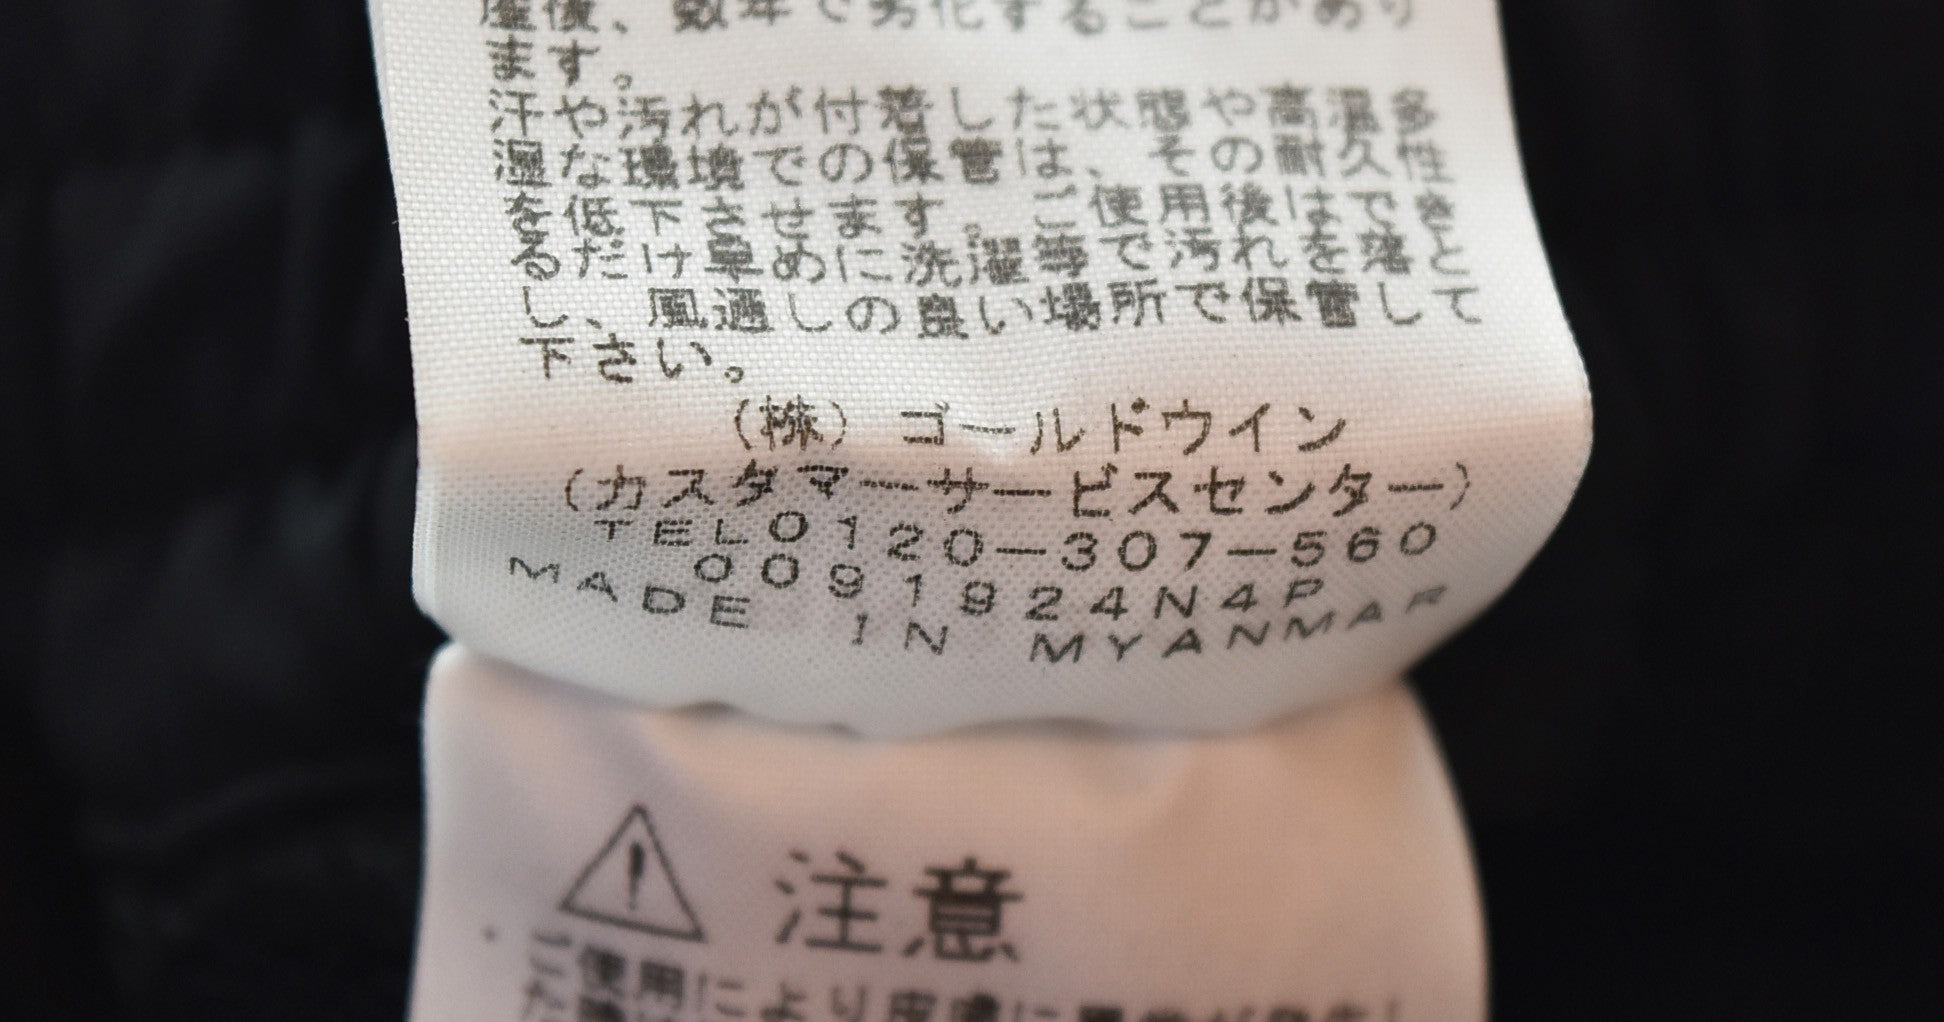 産後、数年で劣化することがあり
ます。
汗や汚れが付着した状態や高温多
湿な環境での保管は、その耐久性
を低下させます。ご使用後はでき
るだけ早めに洗濯等で汚れを落と
し、風通しの良い場所で保管して
下さい。
(株)ゴールドウイン
(カスタマーサービスセンター)
TEL0120-307-560
0091924N4P
MADE IN MYANMAR
注意
ご使用により皮膚に異常が発生し